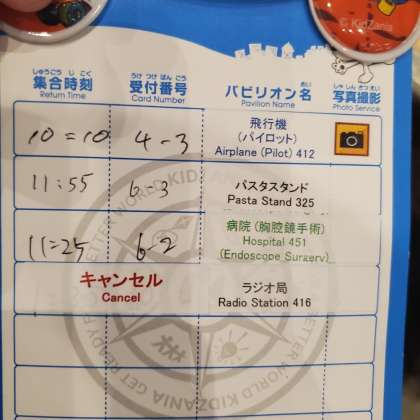 © KidZania
しゅうごうじこく うけつけばんごう めい しゃしんさつえい
集合時刻 受付番号 パビリオン名 写真撮影
Return Time Card Number Pavilion Name Photo Service
飛行機
10=10 4-3 (パイロット)
Airplane (Pilot) 412
11:55 6-3 パスタスタンド
Pasta Stand 325
病院 (胸腔鏡手術)
11=25 6-2 Hospital 451
(Endoscope Surgery)
キャンセル ラジオ局
Cancel Radio Station 416
BETTER WORLD KIDZANIA GET READY FOR A BETTER WORLD KIDZANIA GET READY